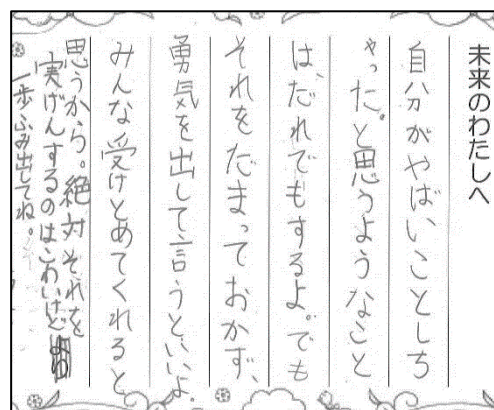 未来のわたしへ
自分がやばいことしち
ゃった。と思うようなこと
は、だれでもするよ。でも
それをだまっておかず、
勇気を出して言うといいよ。
みんな受けとめてくれると
思うから。絶対それを
実げんするのはこわいけど
一歩ふみ出してね。